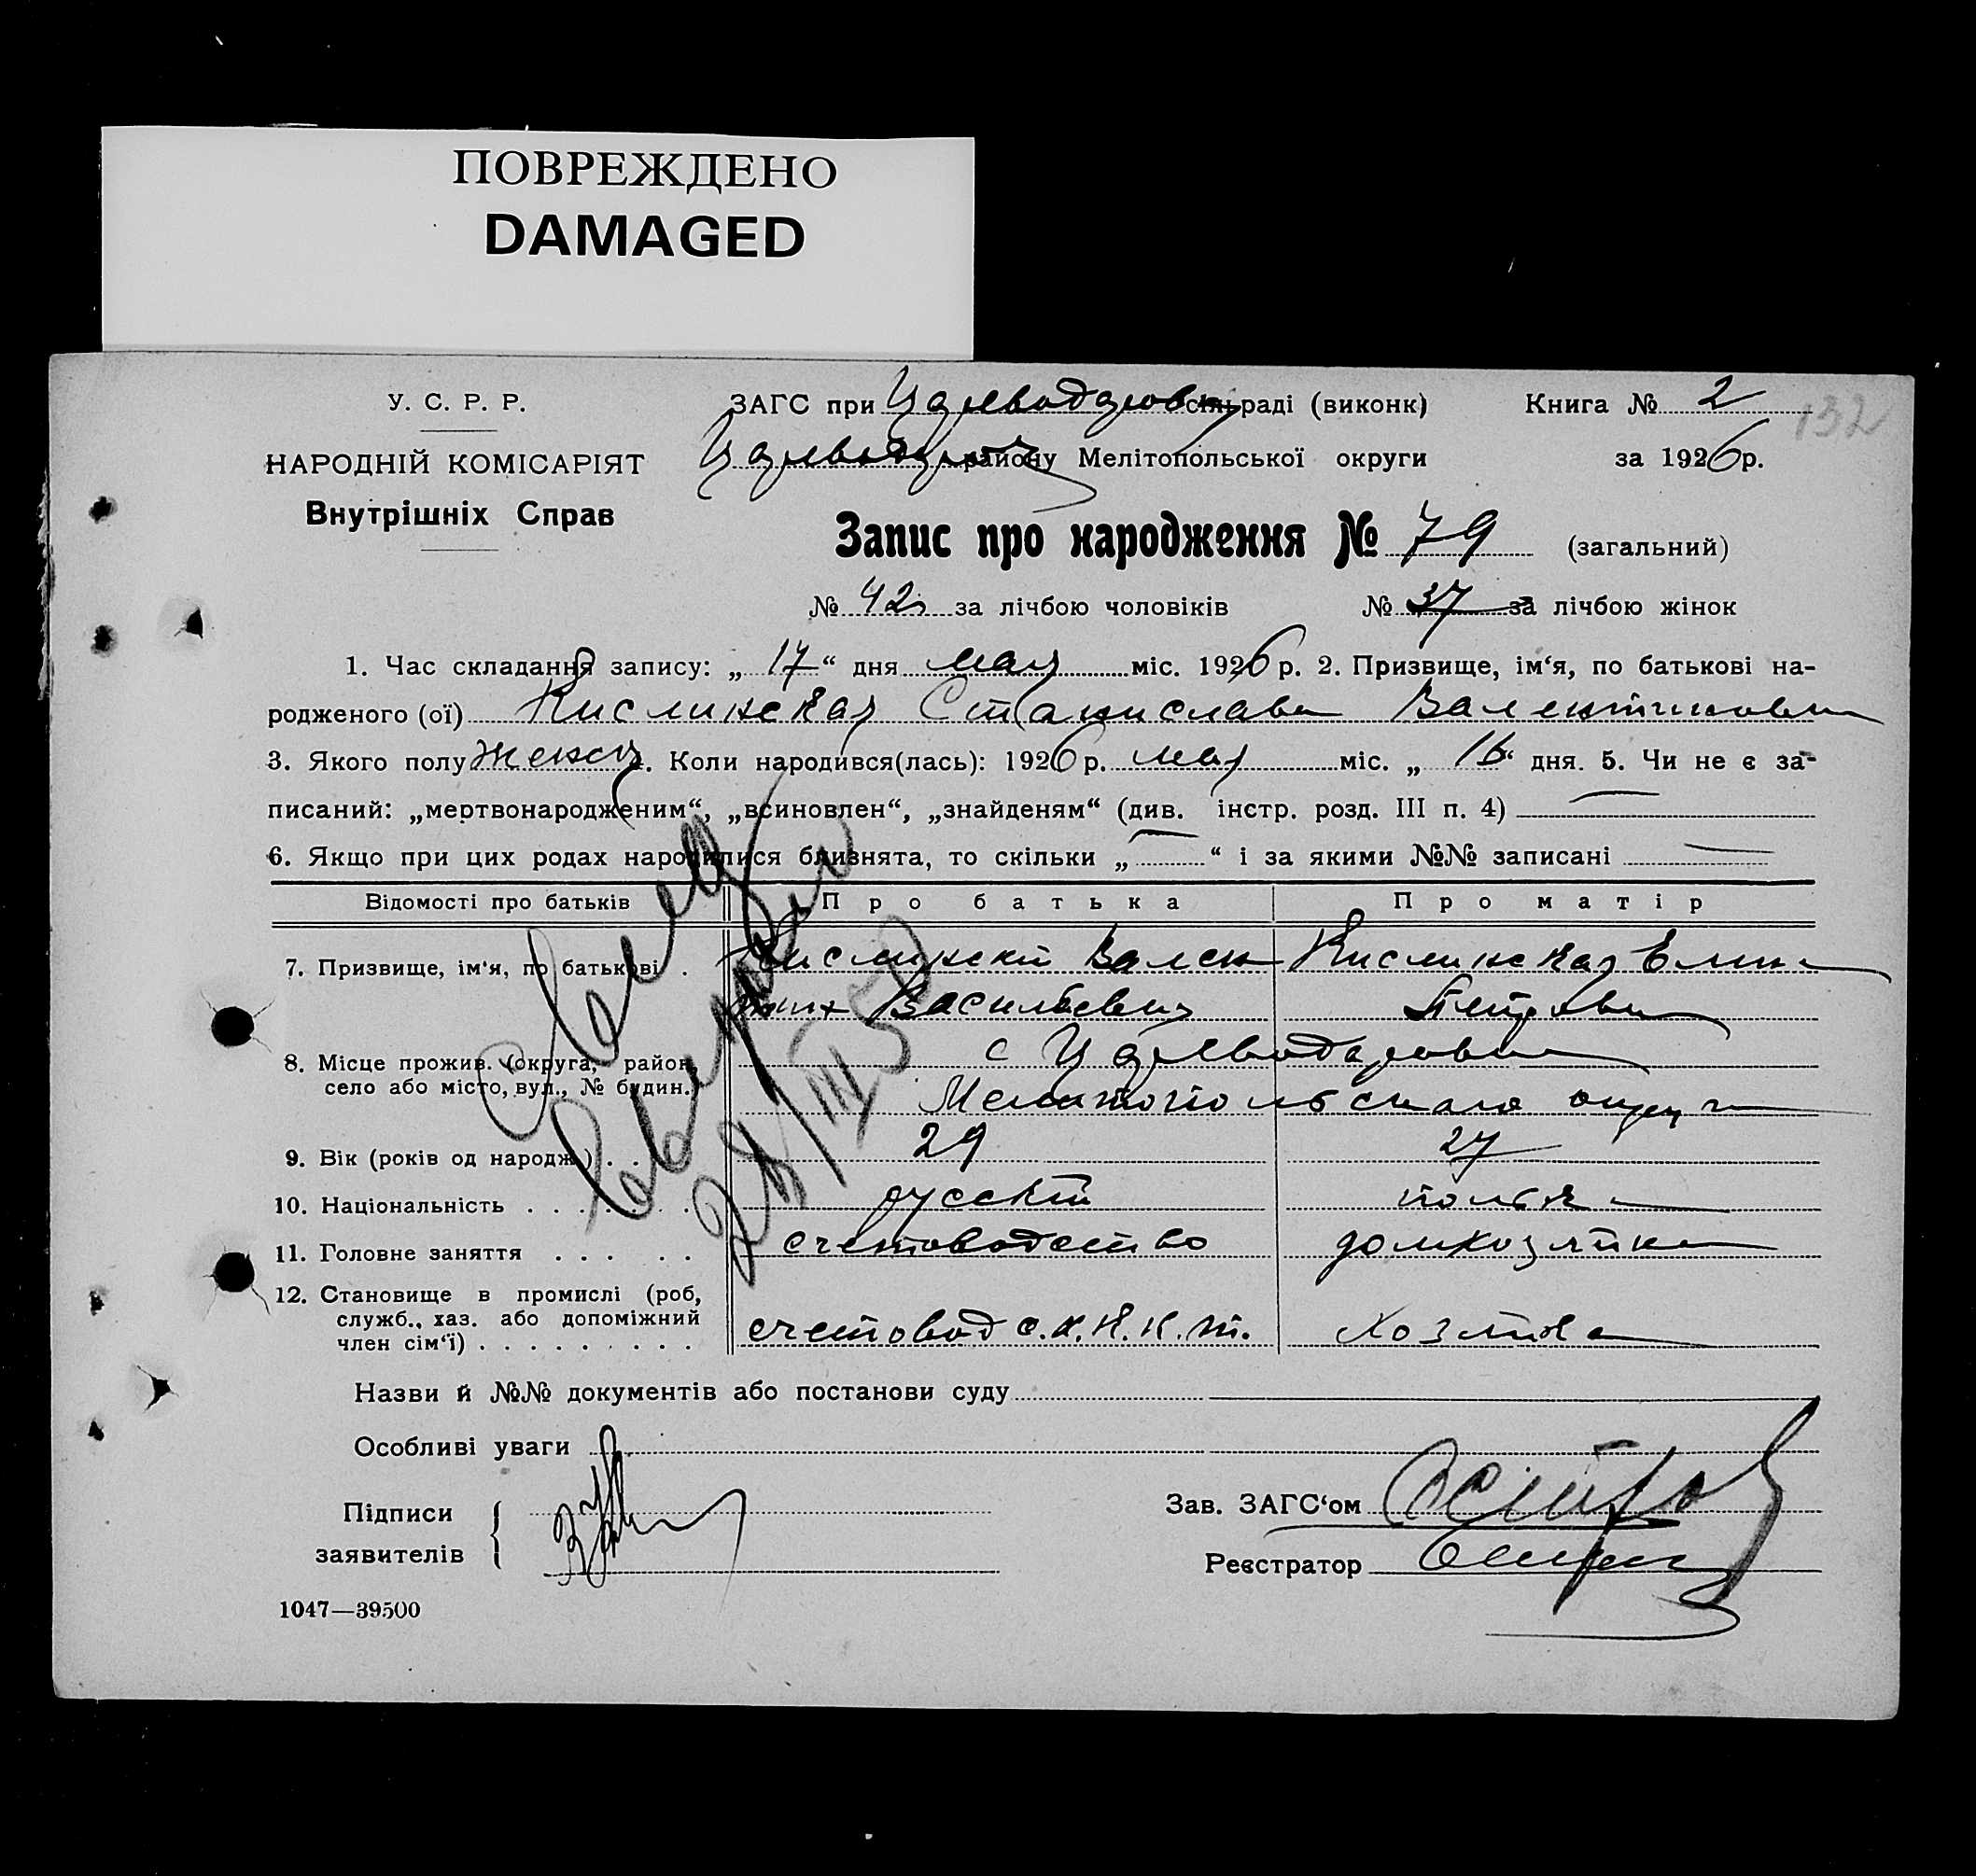 ПОВРЕЖДЕНО
DAMAGED
У. С. Р. Р.
ЗАГС при Цареводаровск сільраді (виконк) Книга № 2 132
НАРОДНІЙ КОМІСАРІЯТ
району Мелітопольської округи за 1926 р.
Внутрішніх Справ
Запис про народження № 79 (загальний)
№ 42 за лічбою чоловіків № 37 за лічбою жінок
1. Час складання запису: „ 17 “ дня мая міс. 1926 р. 2. Призвище, ім‘я, по батькові на-
родженого (ої) Кислинская Станислава Валентиновна
3. Якого полу женск. Коли народився(лась): 1926 р. мая міс. „ 16 “ дня. 5. Чи не є за-
писаний: „мертвонародженим“, „всиновлен“, „знайденям“ (див. інстр. розд. III п. 4) —
6. Якщо при цих родах народилися близнята, то скільки „ — “ і за якими №№ записані —
Відомості про батьків Про батька Про матір
7. Призвище, ім‘я, по батькові . Кислинский Вален Кислинская Елена
тин Васильевич Петровна
8. Місце прожив. (округа, район,
село або місто, вул., № будин.)
с Цареводаровка
Мелитопольского округа
9. Вік (років од народж.) . . 29 27
10. Національність . . . . . . русский полька
11. Головне заняття . . . . . счетоводство домхозяйка
12. Становище в промислі (роб,
служб., хаз. або допоміжний
член сім‘ї) . . . . . . . . . счетовод с.х.к.к.т. хозяйка
Назви й №№ документів або постанови суду
Особливі уваги
Підписи
заявителів
Зав. ЗАГС‘ом Осипов
Реєстратор
1047—39500